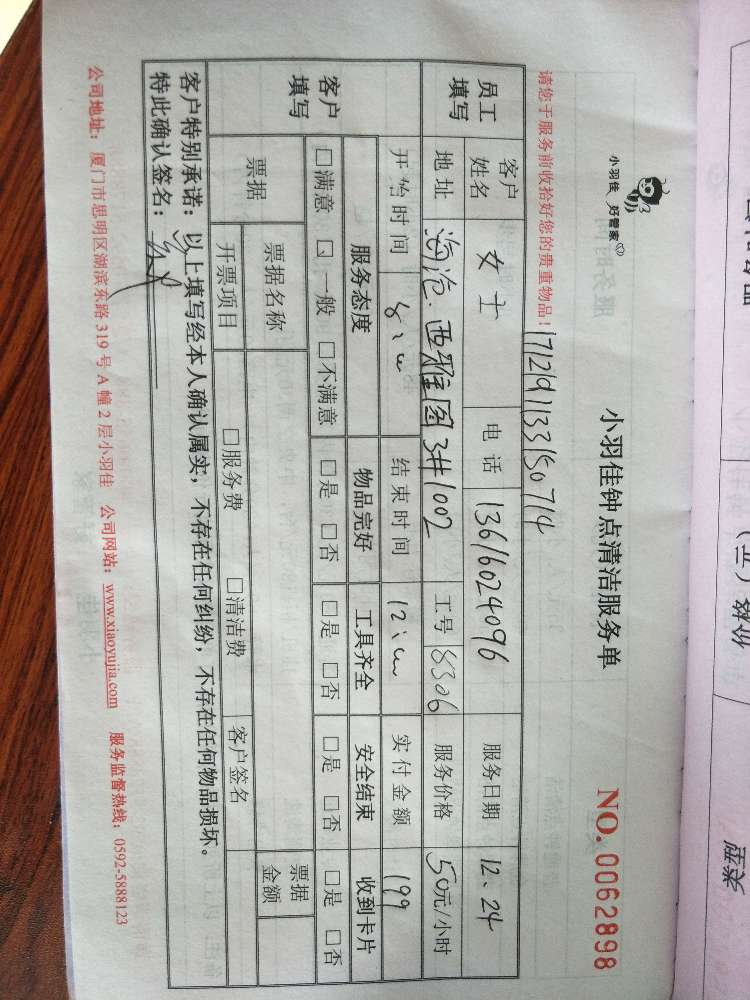 小羽佳 好管家
小羽佳钟点清洁服务单
NO. 0062898
请您于服务前收拾好您的贵重物品！171291133150714
员工填写 客户姓名 女士 电话 13616024096 服务日期 12、24
地址 海沧 西雅图 3#1002 工号 8306 服务价格 50元/小时
开始时间 结束时间 实付金额 199
客户填写 服务态度 物品完好 工具齐全 安全结束 收到卡片
□满意 □一般 □不满意 □是 □否 □是 □否 □是 □否 □是 □否
票据 票据名称 票据金额
开票项目 □服务费 □清洁费 客户签名
客户特别承诺：以上填写经本人确认属实，不存在任何纠纷，不存在任何物品损坏。
特此确认签名：
公司地址：厦门市思明区湖滨东路 319 号 A 幢 2 层小羽佳 公司网站：www.xiaoyujia.com 服务监督热线：0592-5888123